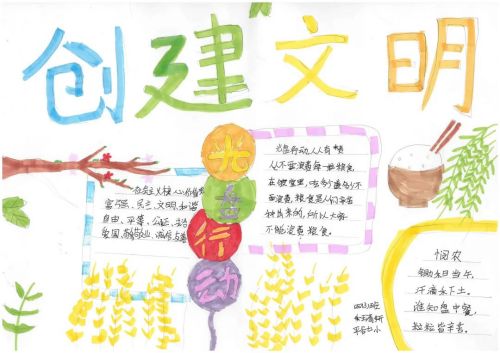 创建文明
光
盘
行
动
社会主义核心价值观
富强、民主、文明、和谐
自由、平等、公正、法治
爱国、敬业、诚信、友善
光盘行动人人有责
从不浪费每一粒粮食
在饭堂里,吃多少盛多少不
要浪费,粮食是人们辛苦
种出来的,所以大家
不能浪费粮食。
悯农
锄禾日当午,
汗滴禾下土。
谁知盘中餐,
粒粒皆辛苦。